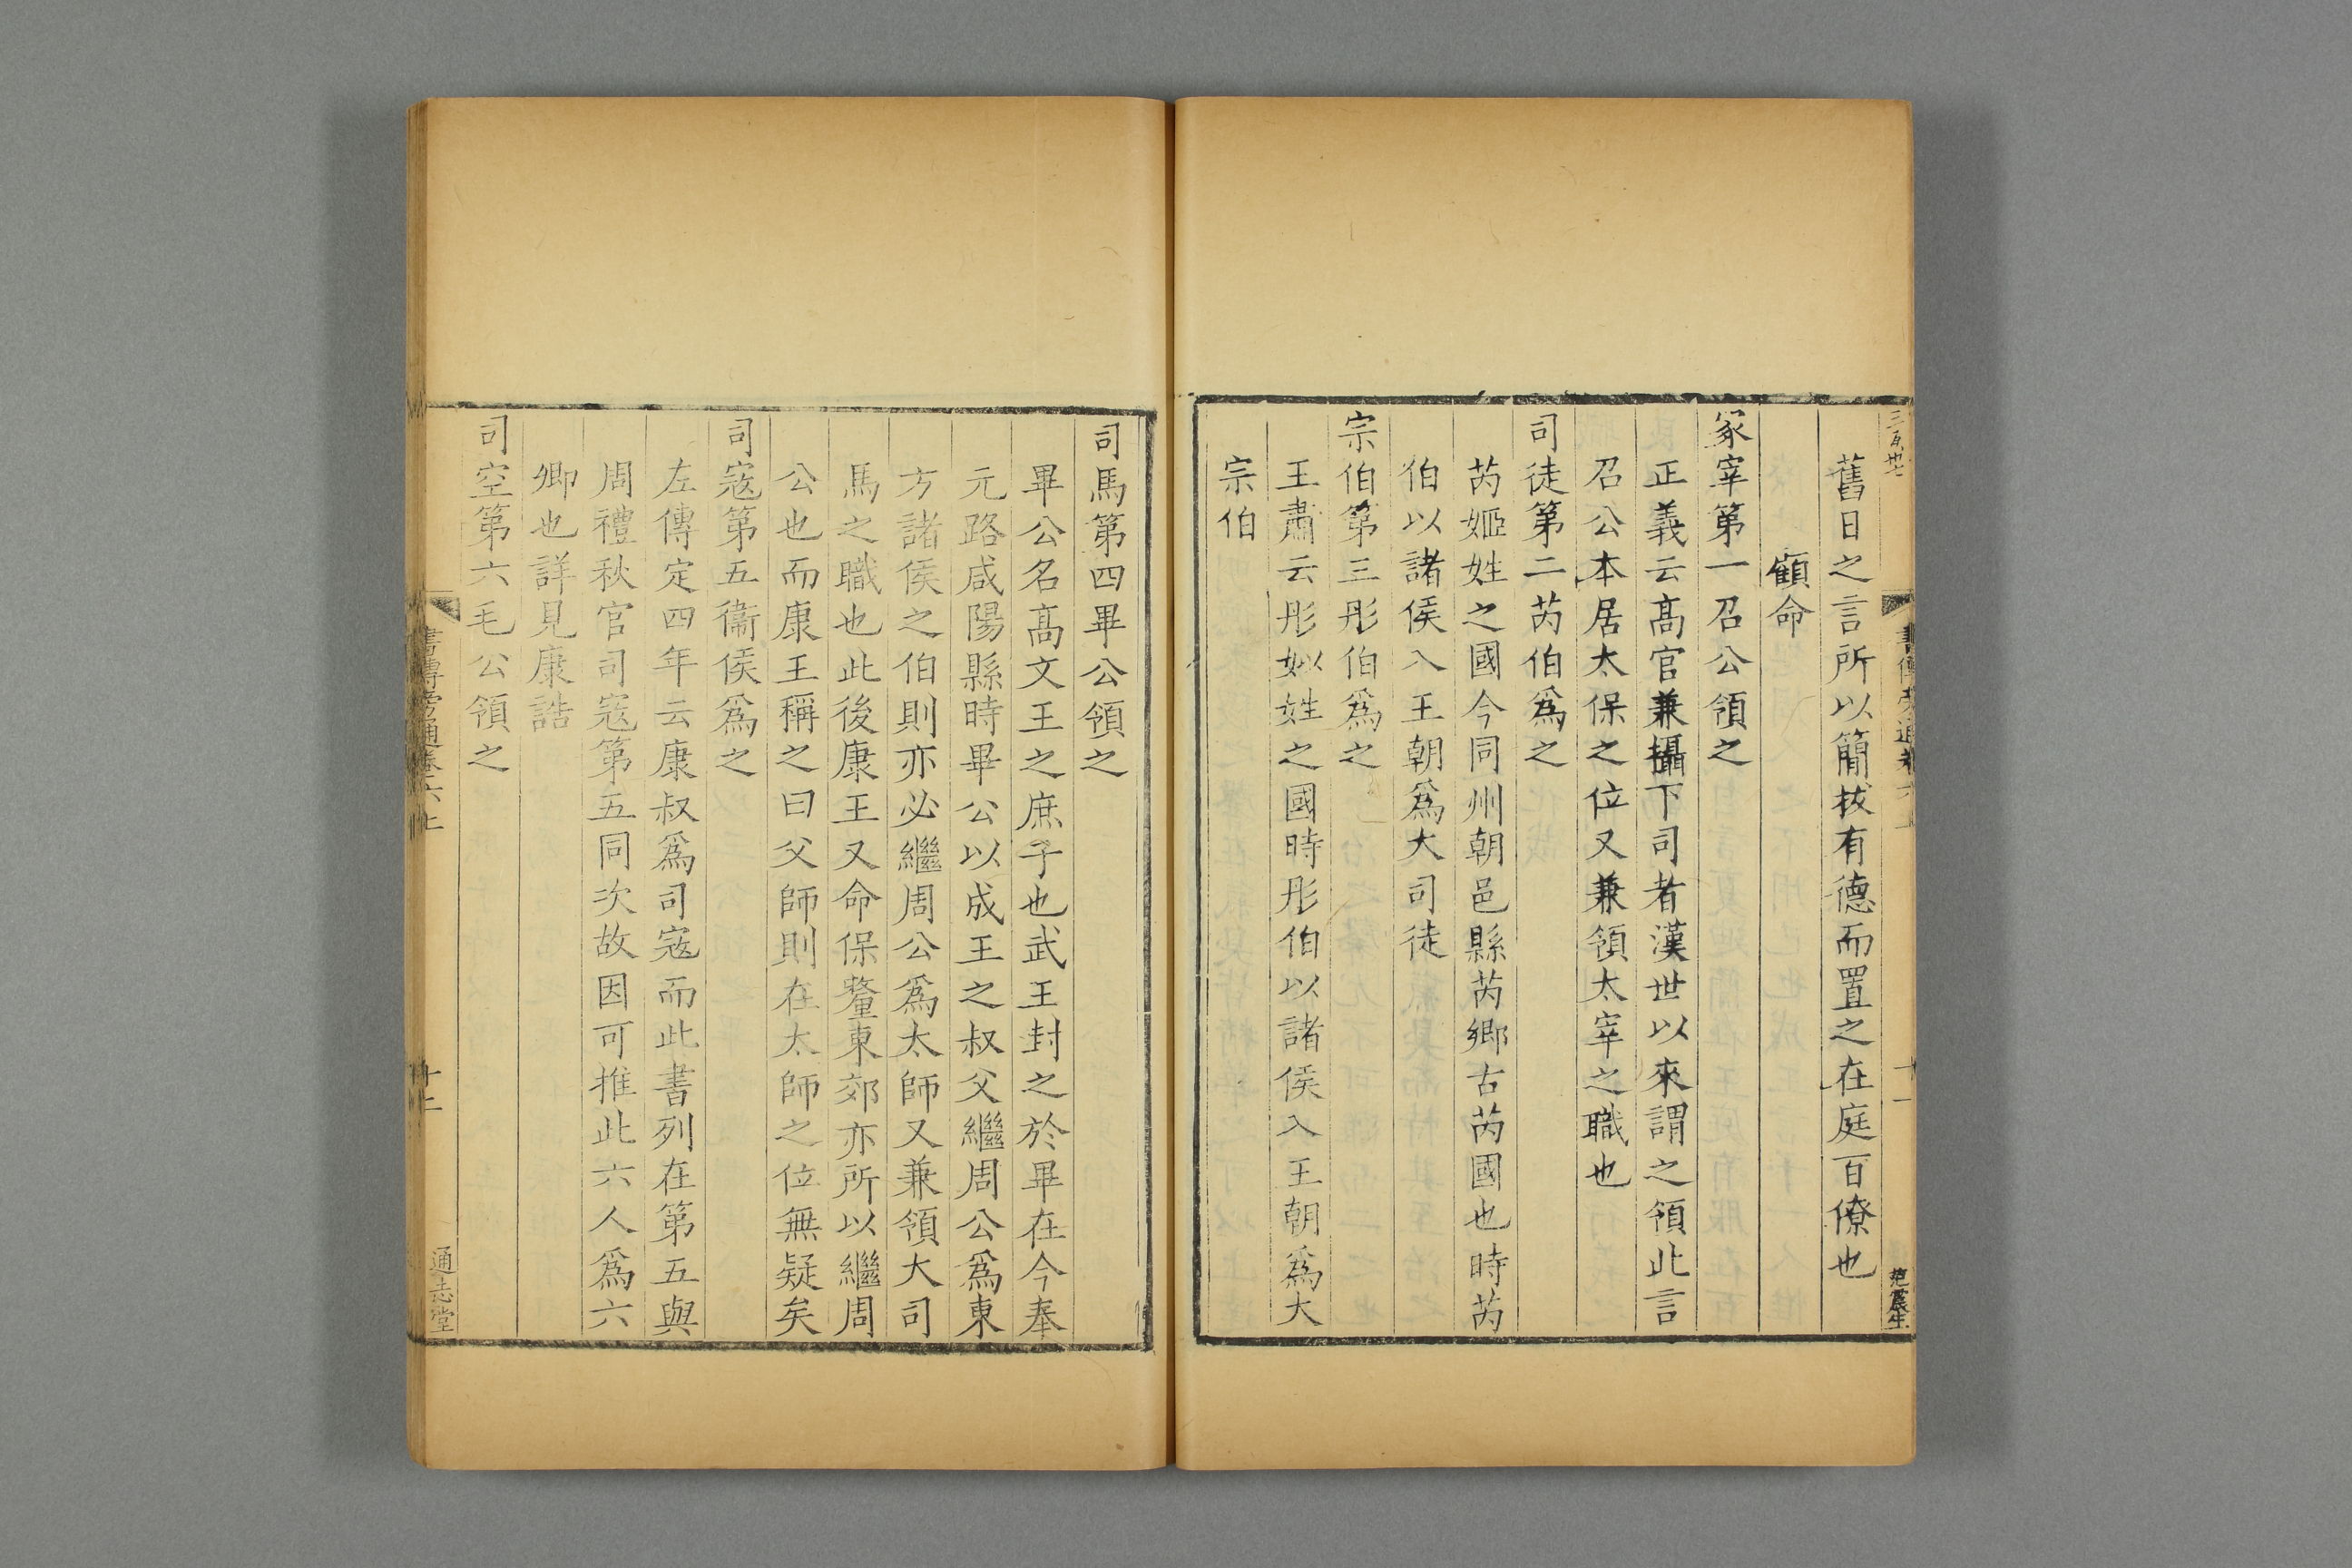 舊日之言所以簡拔有德而置之在庭百僚也
顧命
冢宰第一召公領之
正義云高官兼攝下司者漢世以來謂之領此言
召公本居太保之位又兼領太宰之職也
司徒第二芮伯爲之
芮姬姓之國今同州朝邑縣芮鄉古芮國也時芮
伯以諸侯入王朝爲大司徒
宗伯第三彤伯爲之
王肅云彤姒姓之國時彤伯以諸侯入王朝爲大
宗伯
司馬第四畢公領之
畢公名高文王之庶子也武王封之於畢在今奉
元路咸陽縣時畢公以成王之叔父繼周公爲東
方諸侯之伯則亦必繼周公爲太師又兼領大司
馬之職也此後康王又命保釐東郊亦所以繼周
公也而康王稱之曰父師則在太師之位無疑矣
司寇第五衞侯爲之
左傳定四年云康叔爲司寇而此書列在第五與
周禮秋官司寇第五同次故因可推此六人爲六
卿也詳見康誥
司空第六毛公領之
書傳旁通卷六上
十二
通志堂